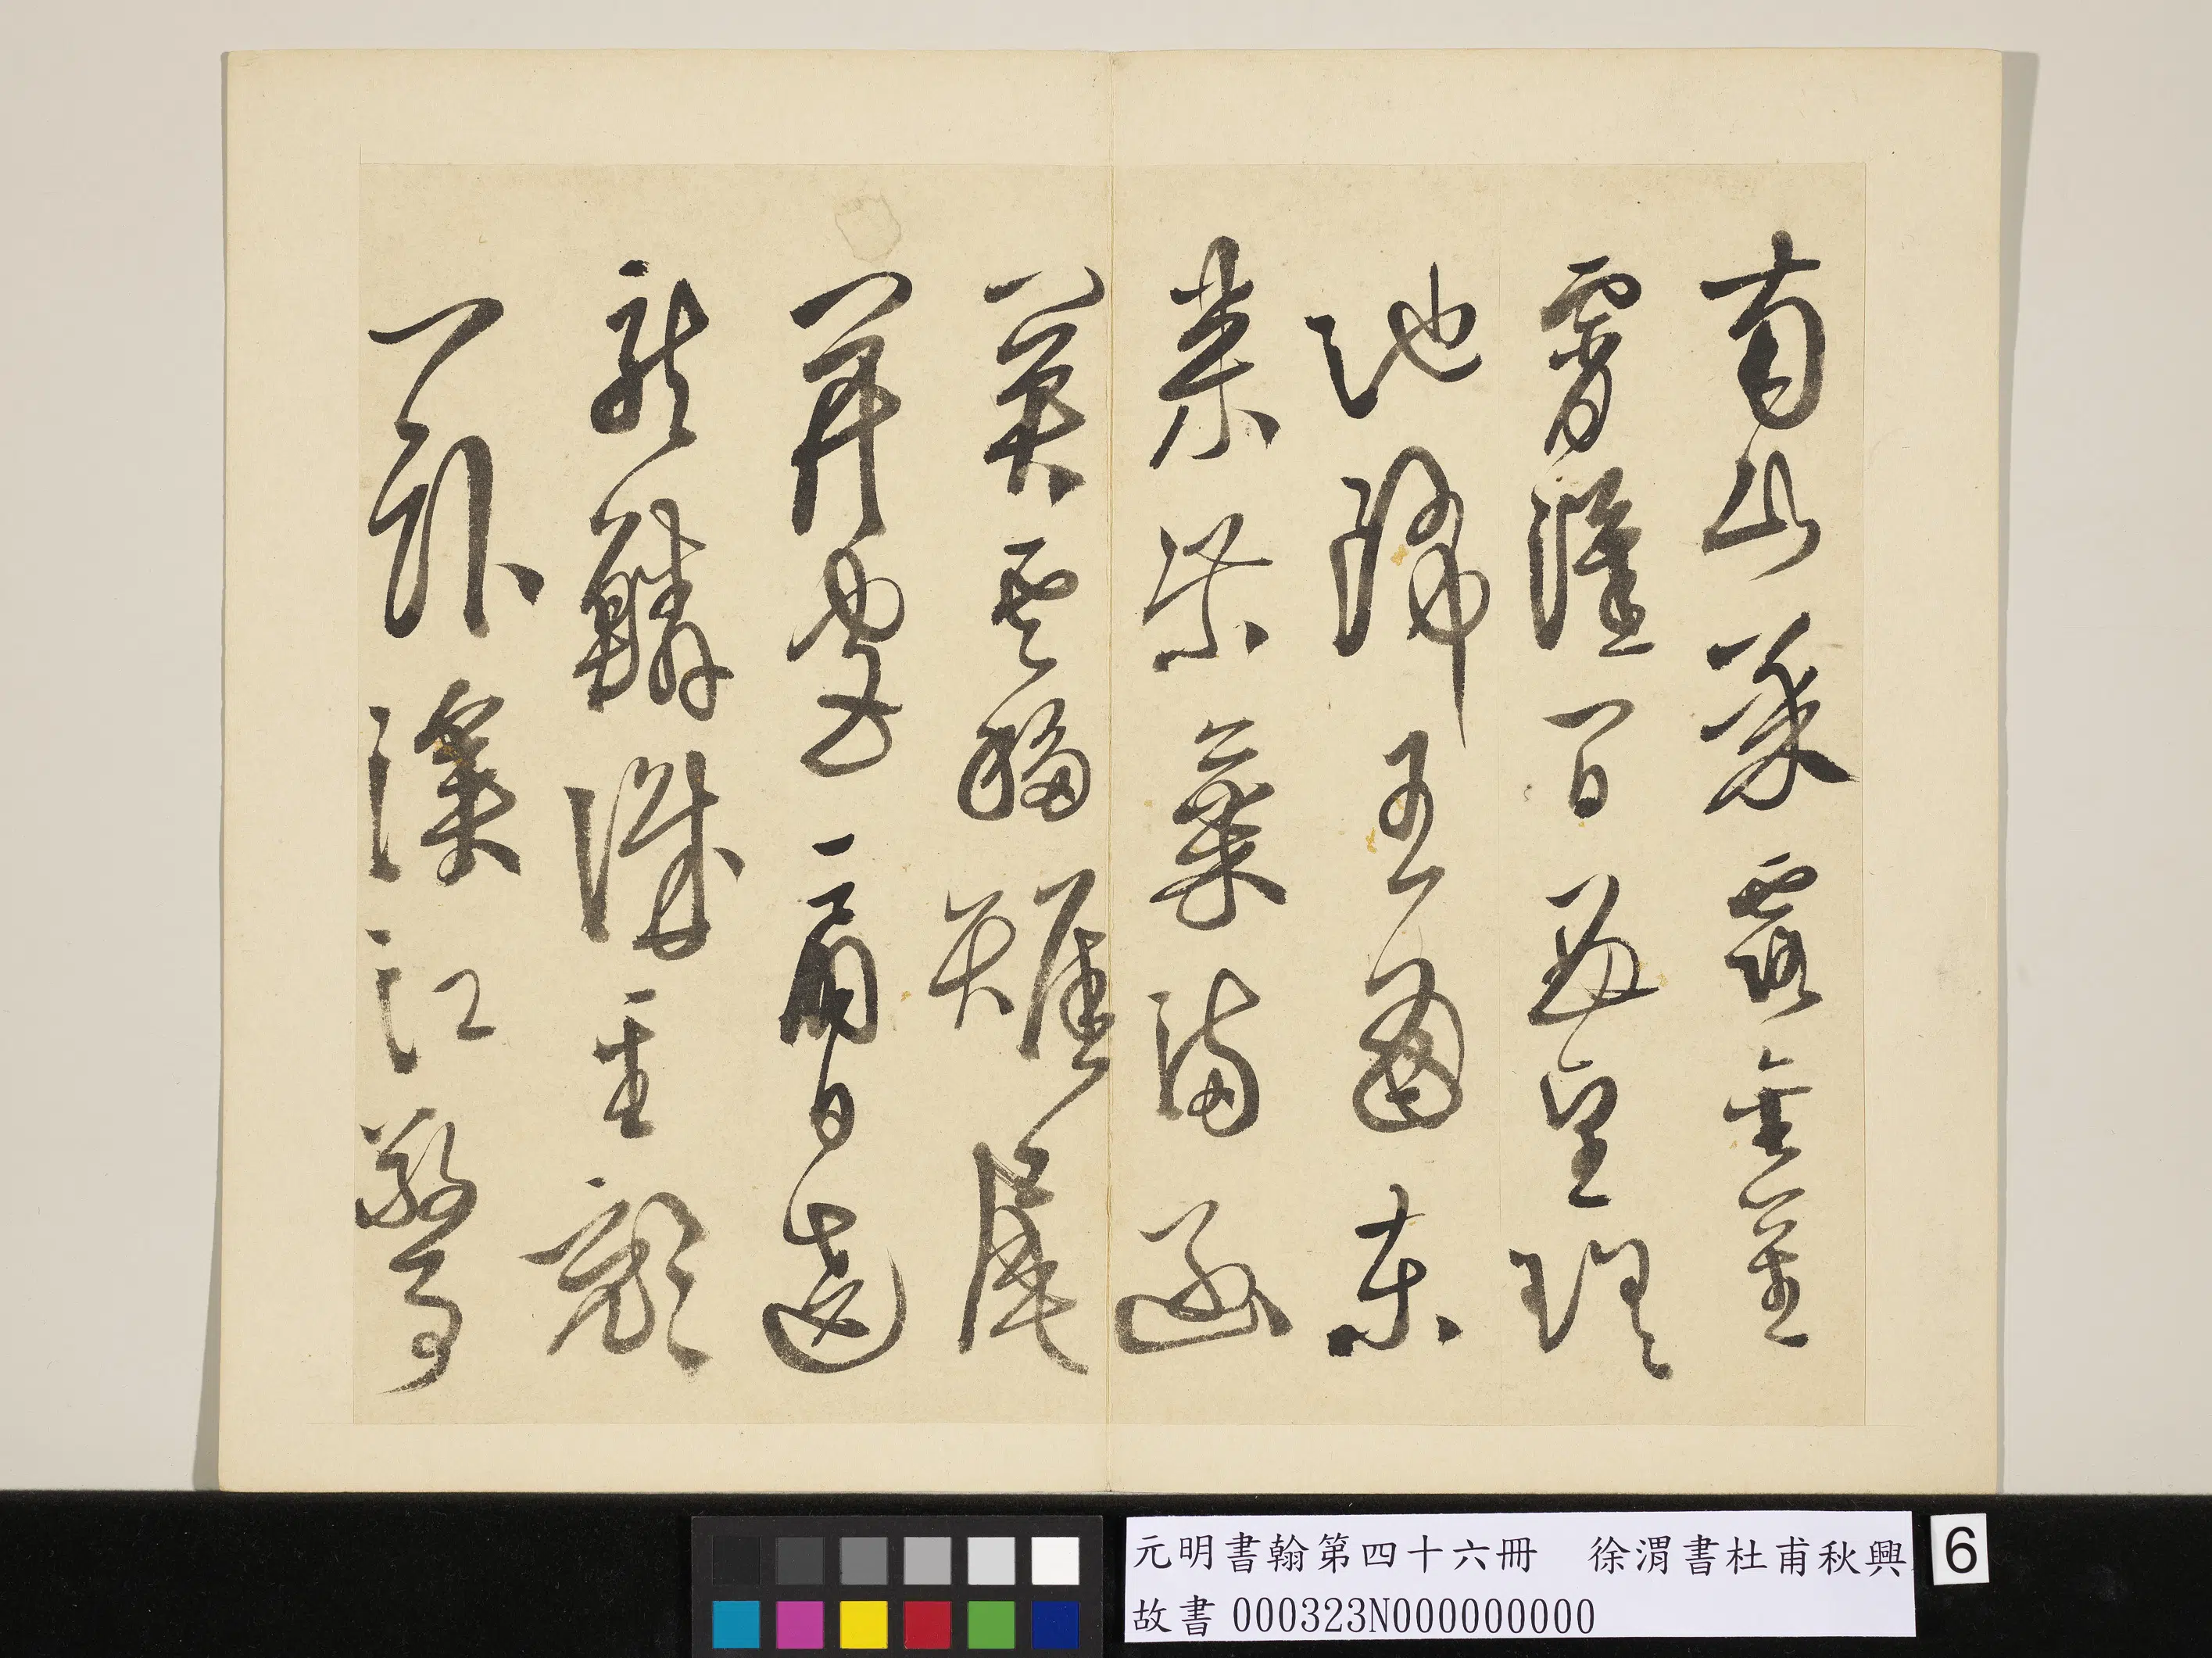 南山承露金莖
霄漢間西望瑤
池降王母東
來紫氣滿函
關雲移雉尾
開宮扇日繞
龍鱗識聖顏
一臥滄江驚
元明書翰第四十六冊　徐渭書杜甫秋興
故書 000323N000000000
6